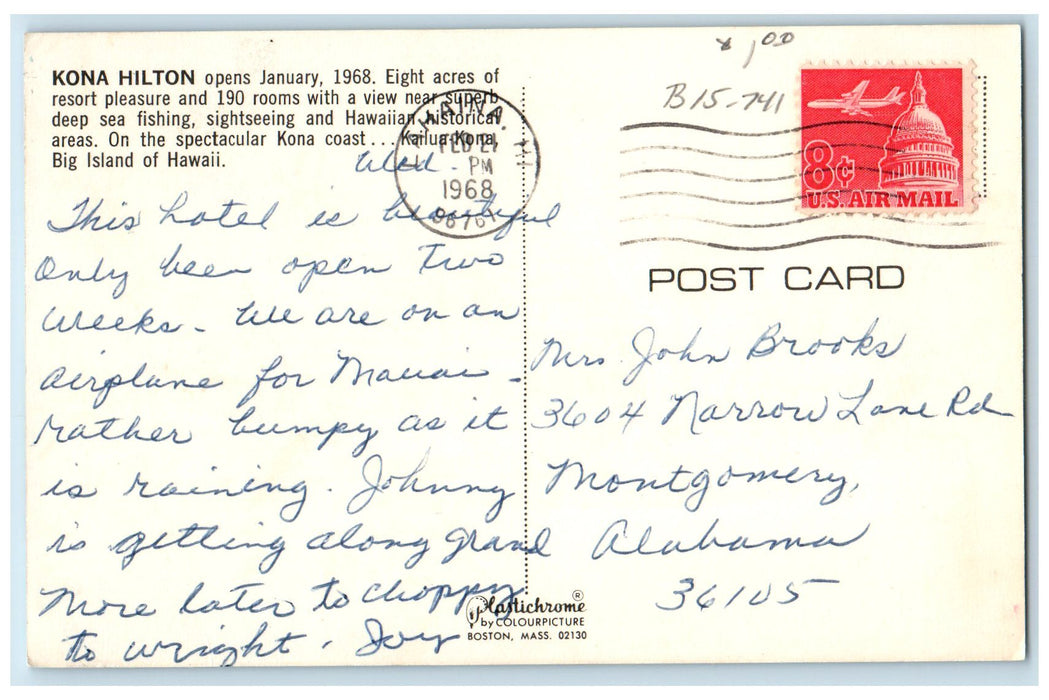 KONA HILTON opens January, 1968. Eight acres of
resort pleasure and 190 rooms with a view near superb
deep sea fishing, sightseeing and Hawaiian historical
areas. On the spectacular Kona coast . . . Kailua-Kona,
Big Island of Hawaii.
Wed -
This hotel is beautiful
Only been open two
weeks - We are on an
airplane for Mauai -
rather bumpy as it
is raining. Johnny
is getting along grand
More later to choppy
to wright. Joy
LAHAINA, HI
FEB 21
PM
1968
96761
1,00
B15-741
8¢
U.S. AIR MAIL
POST CARD
Mrs. John Brooks
3604 Narrow Lane Rd
Montgomery,
Alabama
36105
Plastichrome ®
by COLOURPICTURE
BOSTON, MASS. 02130